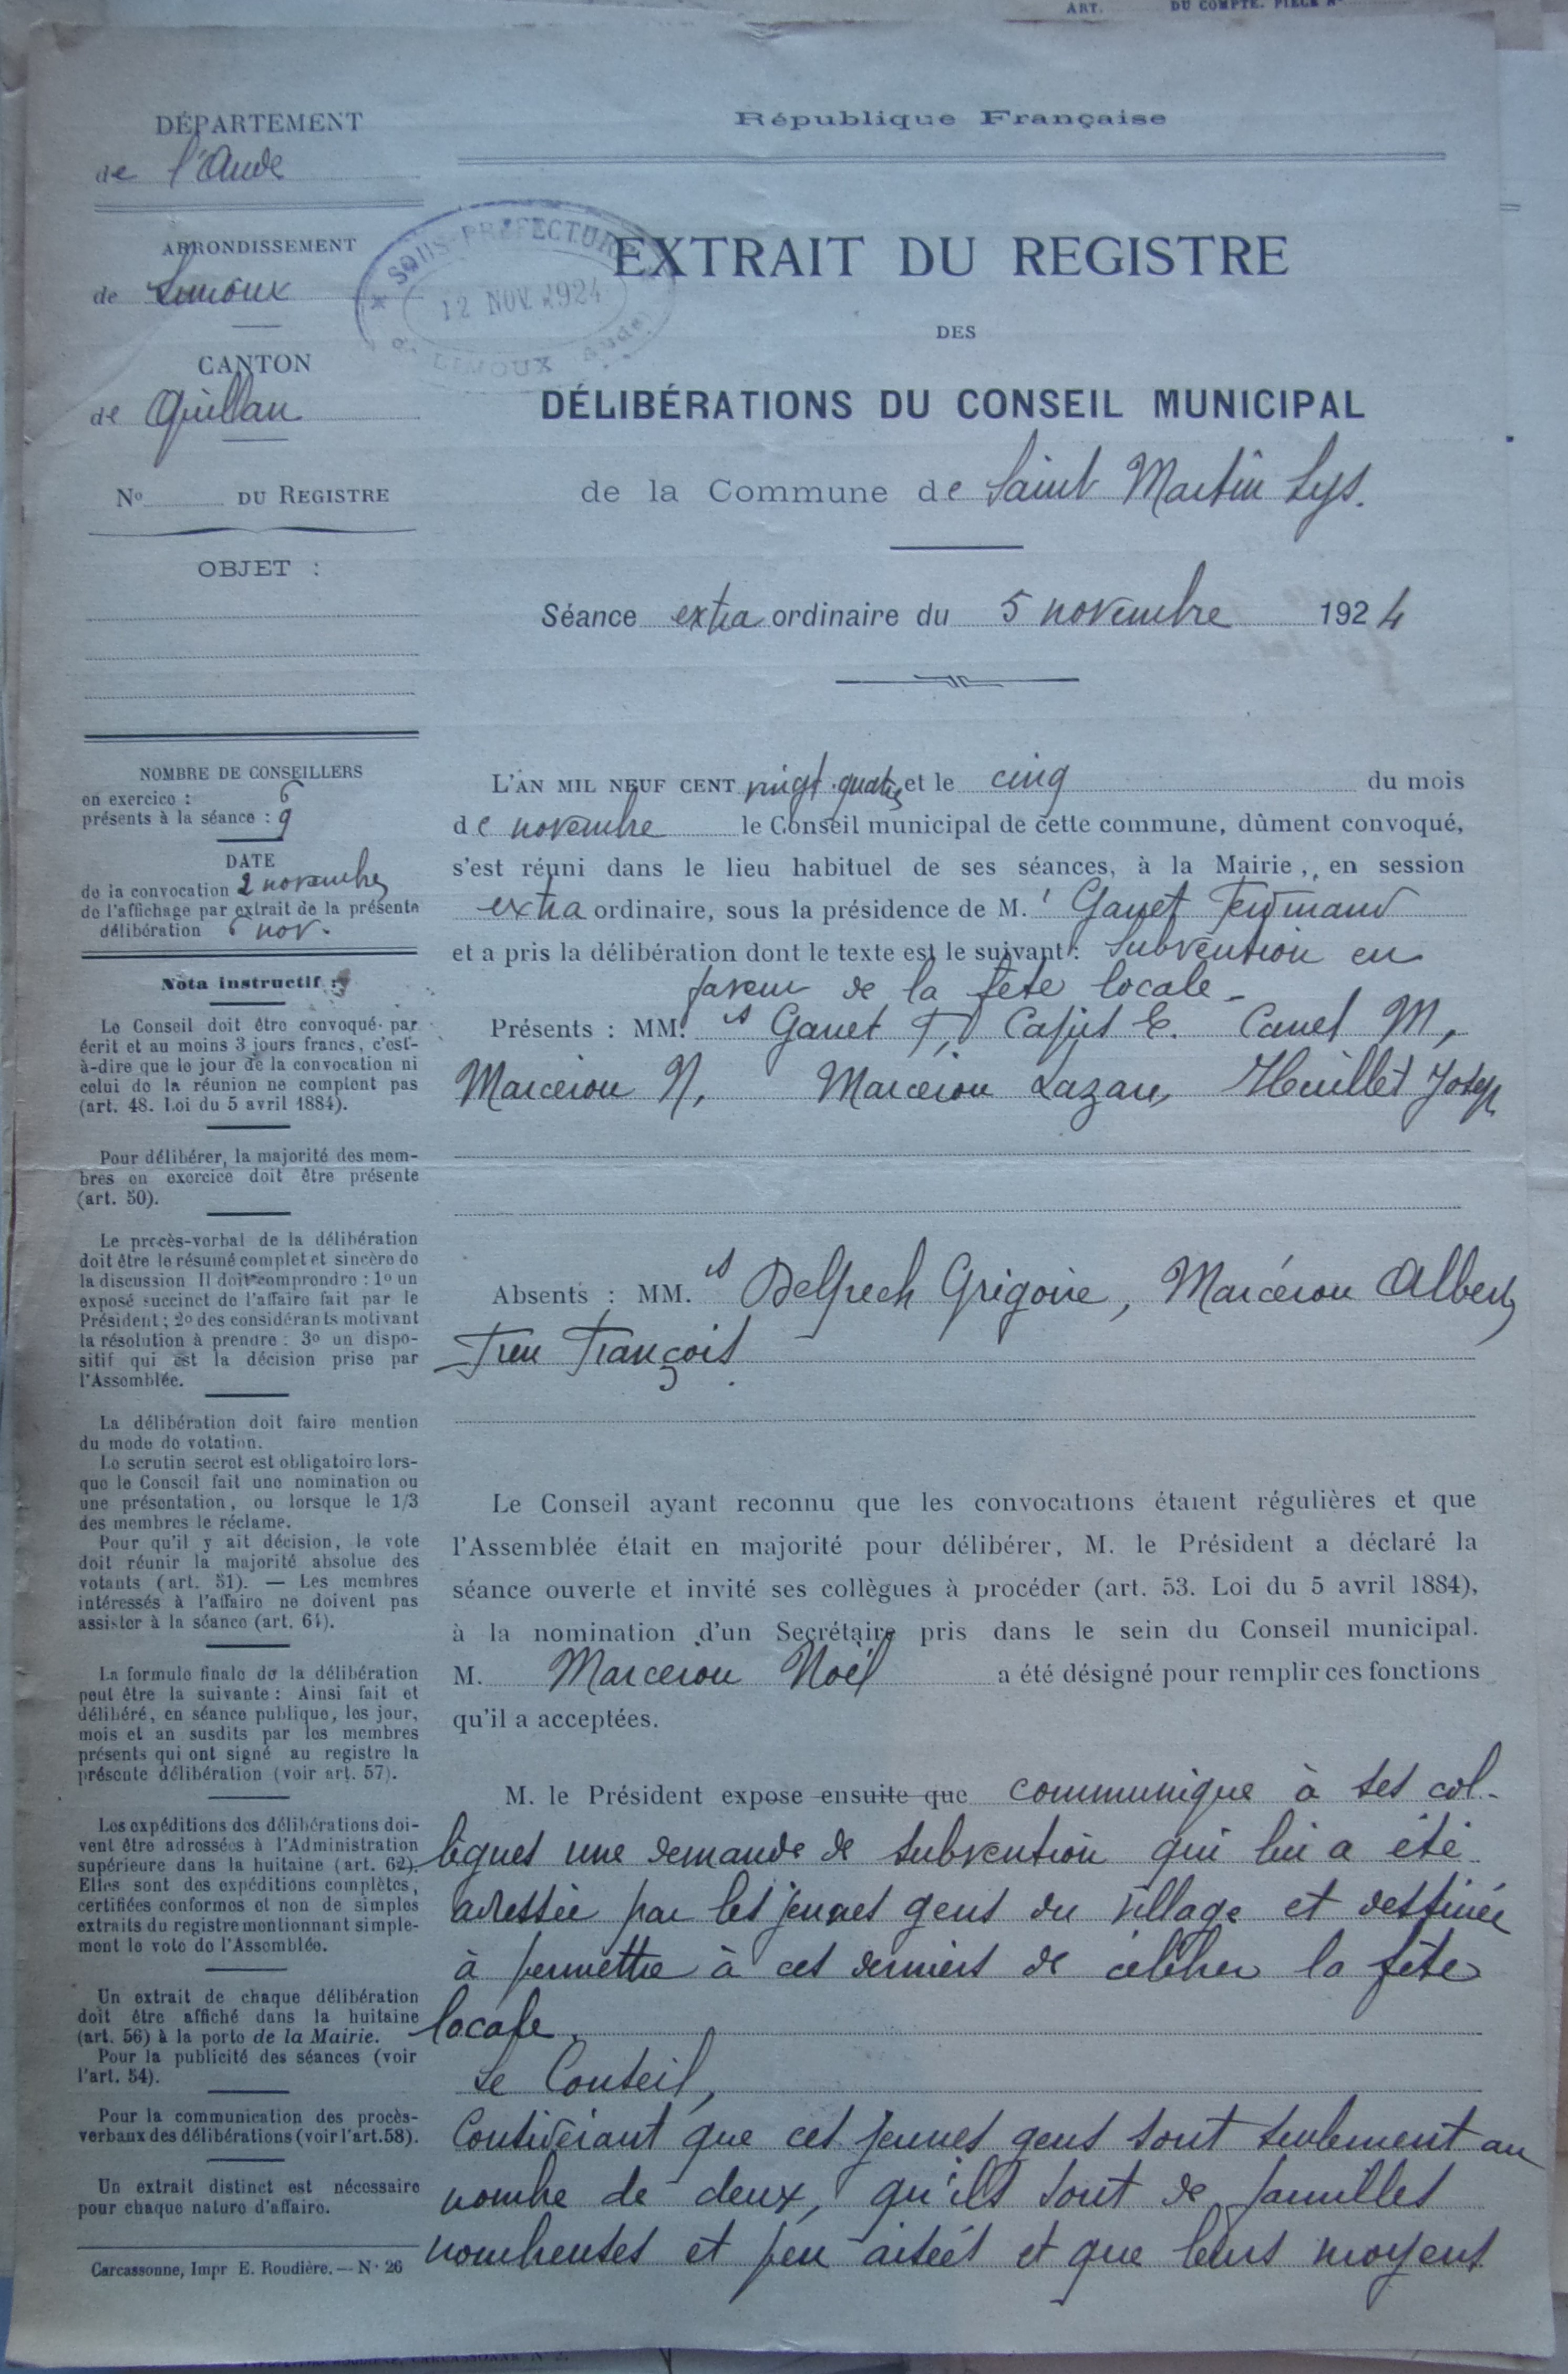 ART. DU COMPTE. PIÈCE N°
DÉPARTEMENT
de l'Aude
ARRONDISSEMENT
de Limoux
CANTON
de Quillan
N° DU REGISTRE
OBJET :
NOMBRE DE CONSEILLERS
en exercice : 6
présents à la séance : 9
DATE
de la convocation 2 novembre
de l'affichage par extrait de la présente
délibération 6 nov.
Nota instructif :
Le Conseil doit être convoqué par
écrit et au moins 3 jours francs, c'est-
à-dire que le jour de la convocation ni
celui de la réunion ne comptent pas
(art. 48. Loi du 5 avril 1884).
Pour délibérer, la majorité des mem-
bres en exercice doit être présente
(art. 50).
Le procès-verbal de la délibération
doit être le résumé complet et sincère de
la discussion Il doit comprendre : 1o un
exposé succinct de l'affaire fait par le
Président ; 2o des considérants motivant
la résolution à prendre : 3o un dispo-
sitif qui est la décision prise par
l'Assemblée.
La délibération doit faire mention
du mode de votation.
Le scrutin secret est obligatoire lors-
que le Conseil fait une nomination ou
une présentation, ou lorsque le 1/3
des membres le réclame.
Pour qu'il y ait décision, le vote
doit réunir la majorité absolue des
votants (art. 51). — Les membres
intéressés à l'affaire ne doivent pas
assister à la séance (art. 64).
La formule finale de la délibération
peut être la suivante : Ainsi fait et
délibéré, en séance publique, les jour,
mois et an susdits par les membres
présents qui ont signé au registre la
présente délibération (voir art. 57).
Les expéditions des délibérations doi-
vent être adressées à l'Administration
supérieure dans la huitaine (art. 62).
Elles sont des expéditions complètes,
certifiées conformes et non de simples
extraits du registre mentionnant simple-
ment le vote de l'Assemblée.
Un extrait de chaque délibération
doit être affiché dans la huitaine
(art. 56) à la porte de la Mairie.
Pour la publicité des séances (voir
l'art. 54).
Pour la communication des procès-
verbaux des délibérations (voir l'art. 58).
Un extrait distinct est nécessaire
pour chaque nature d'affaire.
Carcassonne, Impr E. Roudière. — N· 26
République Française
SOUS-PRÉFECTURE
12 NOV. 1924
LIMOUX Aude
EXTRAIT DU REGISTRE
DES
DÉLIBÉRATIONS DU CONSEIL MUNICIPAL
de la Commune de Saint Martin Lys.
Séance extra ordinaire du 5 novembre 1924
L'AN MIL NEUF CENT vingt quatre et le cinq du mois
de novembre le Conseil municipal de cette commune, dûment convoqué,
s'est réuni dans le lieu habituel de ses séances, à la Mairie, en session
extra ordinaire, sous la présidence de M. r Ganet Ferdinand
et a pris la délibération dont le texte est le suivant : Subvention en
faveur de la fête locale -
Présents : MM. rs Ganet F, Caput E. Canet M,
Marcerou N, Marcerou Lazare, Heuillet Joseph
Absents : MM. rs Delpech Grégoire, Marcérou Albert,
Freu François.
Le Conseil ayant reconnu que les convocations étaient régulières et que
l'Assemblée était en majorité pour délibérer, M. le Président a déclaré la
séance ouverte et invité ses collègues à procéder (art. 53. Loi du 5 avril 1884),
à la nomination d'un Secrétaire pris dans le sein du Conseil municipal.
M. Marcerou Noël a été désigné pour remplir ces fonctions
qu'il a acceptées.
M. le Président expose ensuite que communique à ses col-
lègues une demande de subvention qui lui a été
adressée par les jeunes gens du village et destinée
à permettre à ces derniers de célébrer la fête
locale.
Le Conseil,
Considérant que ces jeunes gens sont seulement au
nombre de deux, qu'ils sont de familles
nombreuses et peu aisées et que leurs moyens